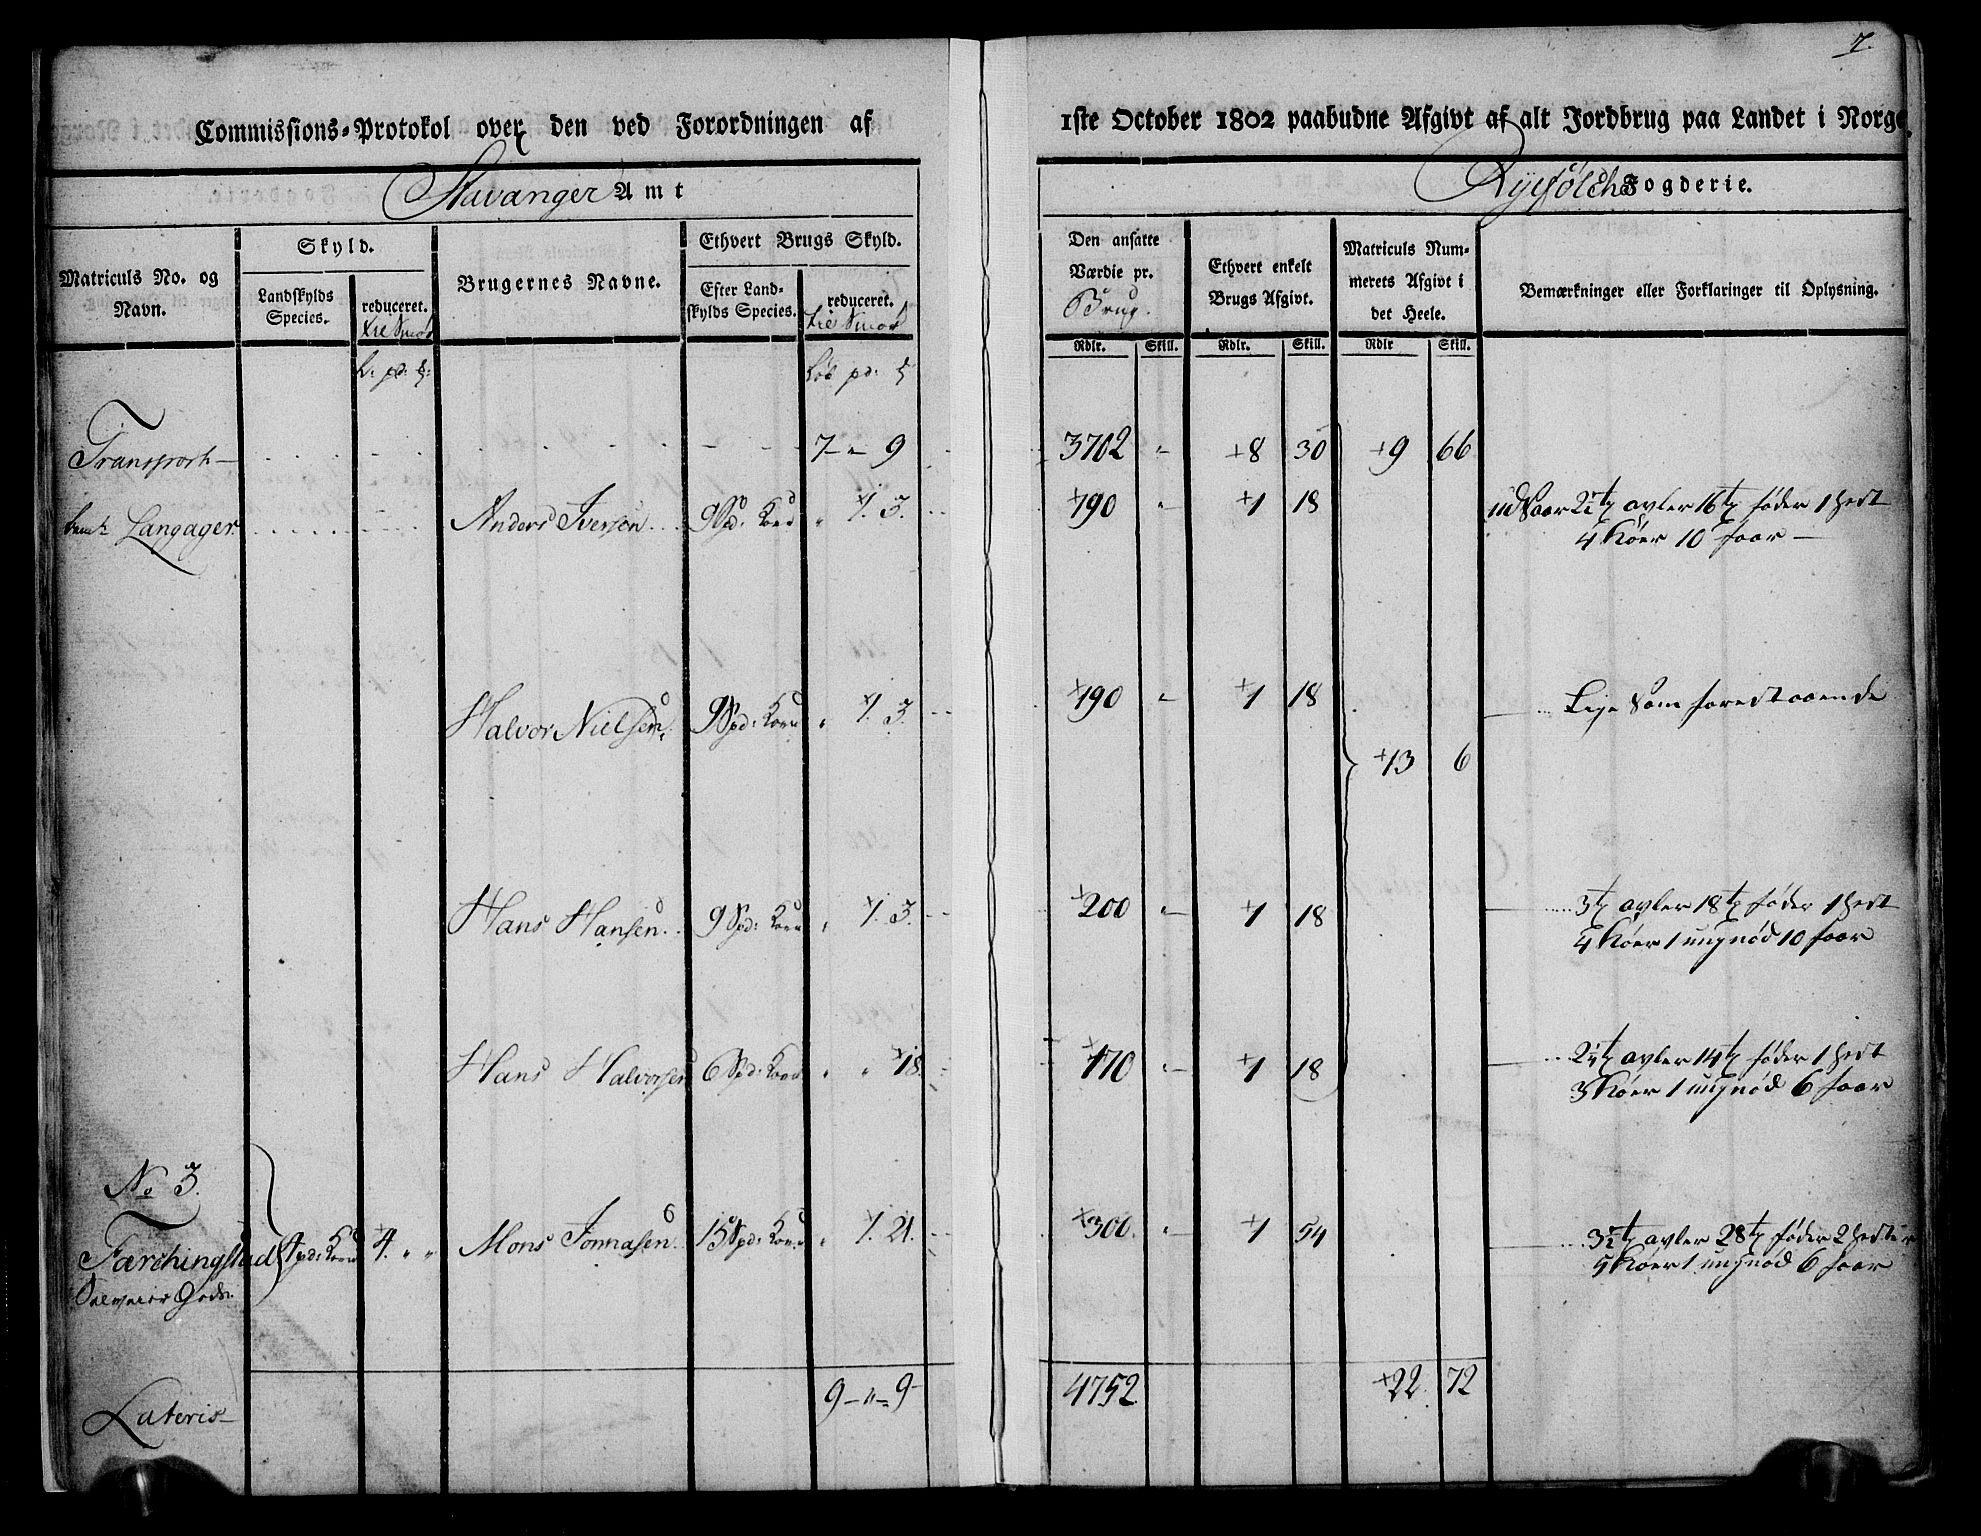 7.
Commissions-Protokol over den ved Forordningen af 1ste October 1802 paabudne Afgivt af alt Jordbrug paa Landet i Norge.
Stavanger Amt
Ryefölche Fogderie.
Matriculs No. og Navn.
Skyld.
Landskylds Species.
reduceret.
Brugernes Navne.
Ethvert Brugs Skyld.
Efter Landskylds Species.
reduceret.
Den ansatte Værdie pr. Brug.
Ethvert enkelt Brugs Afgivt.
Matriculs Nummerets Afgivt i det Heele.
Bemærkninger eller Forklaringer til Oplysning.
Rdlr. Skill. Rdlr. Skill. Rdlr Skill.
Transport 7 - " - 9 3702 " +8 30 +9 66
Langager Anders Iversen 9 Spd: Korn " 1. 3. 190 " +1 18 udSaar 2½ t avler 16 t föder 1 hest
4 Köer 10 faar
Halvor Nielsen 9 Spd: Korn " 1. 3. 190 " +1 18 Lige som forestaaende
+13 6
Hans Hansen 9 Spd: Korn " 1. 3. 200 " +1 18 3 t avler 18 t föder 1 hest
4 Köer 1 ungnöd 10 faar
Hans Halvorsen 6 Spd: Korn " " 18. 170 " +1 18 2¼ t avler 14 t föder 1 hest
3 Köer 1 ungnöd 6 faar
No 3.
Færchingstad 4. " " Mons Jonnasen 15 Spd: Korn " 1. 21. 300. " +1 54 3½ t avler 28 t föder 2 hester
5 Köer 1 ungnöd 6 faar
Selveier Gods.
Lateris 9 - " - 9 4752 +22. 72